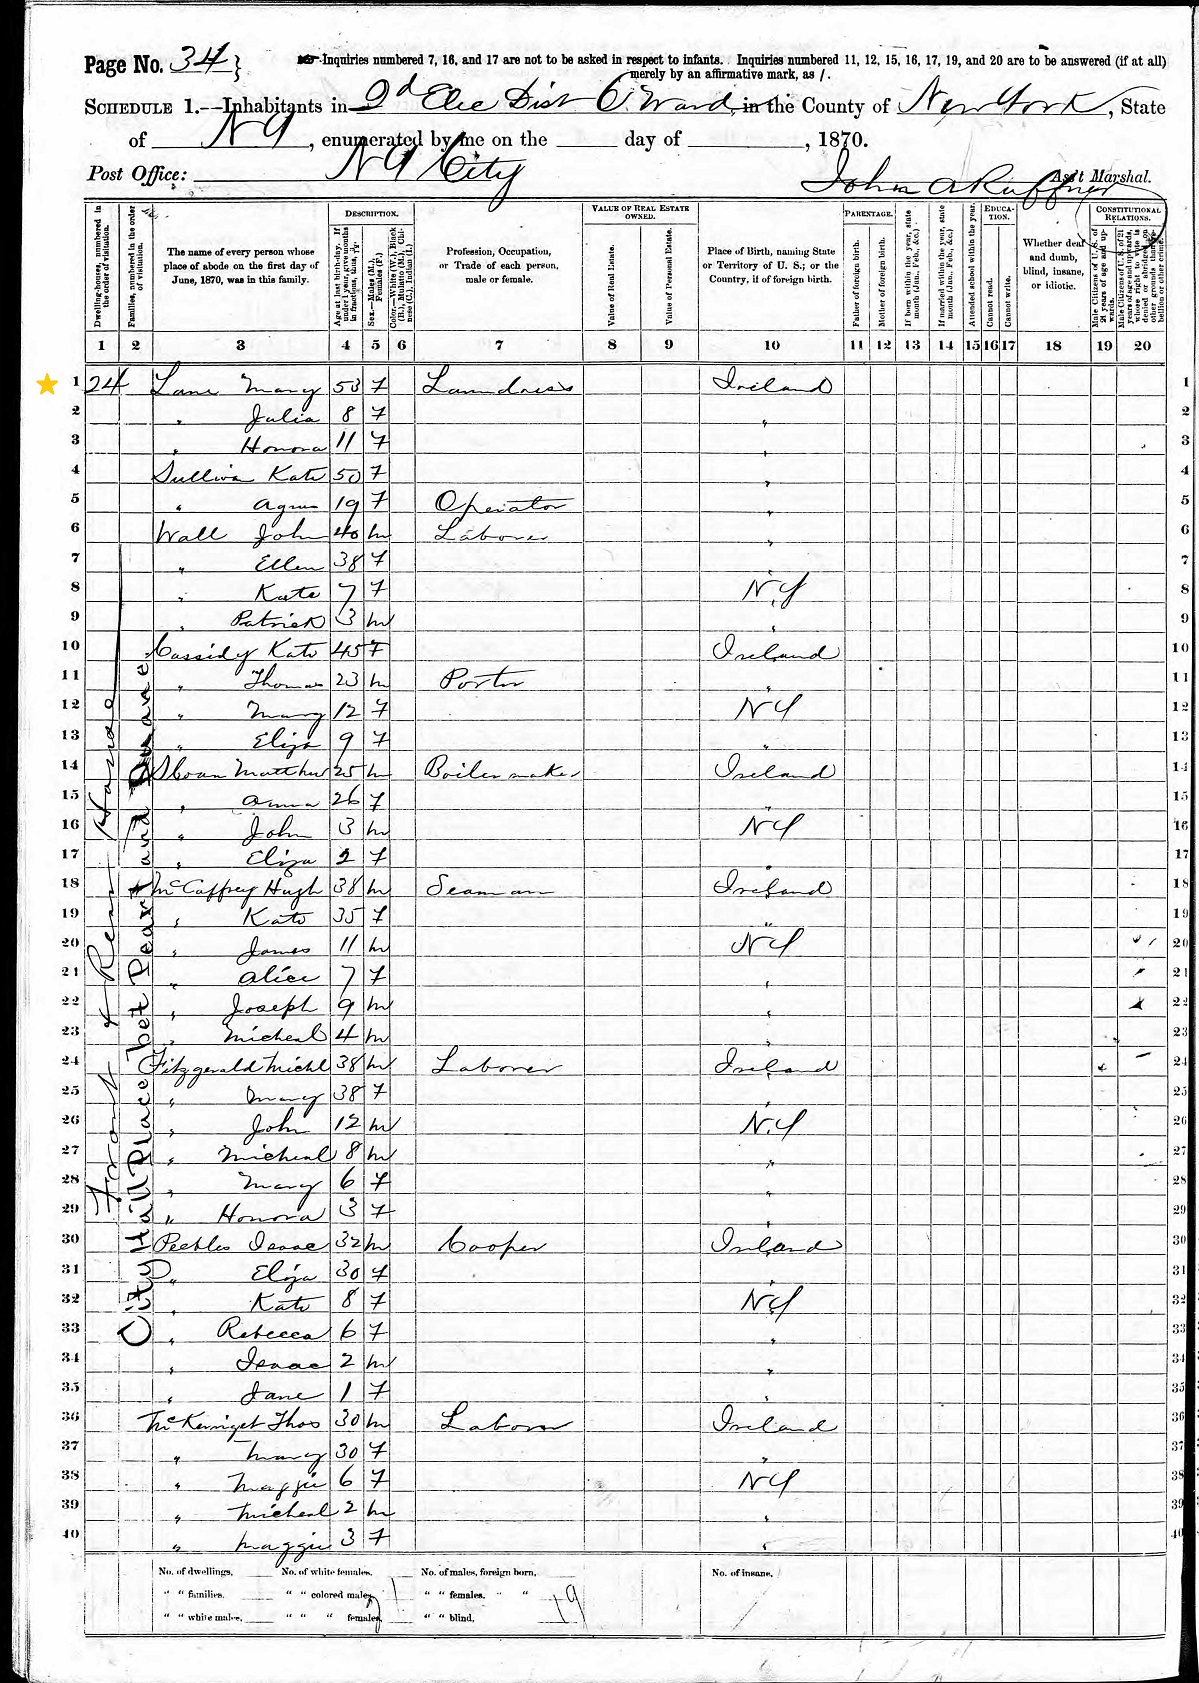 Page No. 34} Inquiries numbered 7, 16, and 17 are not to be asked in respect to infants. Inquiries numbered 11, 12, 15, 16, 17, 19, and 20 are to be answered (if at all)
merely by an affirmative mark, as /.
SCHEDULE 1.—Inhabitants in 9d Elec Dist 6. Ward, in the County of New York, State
of NY, enumerated by me on the day of , 1870.
Post Office: NY City John A Ruffner Ass't Marshal.
DESCRIPTION. VALUE OF REAL ESTATE OWNED. PARENTAGE. EDUCATION. CONSTITUTIONAL RELATIONS.
Dwelling-houses, numbered in the order of visitation.
Families, numbered in the order of visitation.
The name of every person whose place of abode on the first day of June, 1870, was in this family.
Age at last birth-day. If under 1 year, give months in fractions, thus,
Sex.—Males (M.), Females (F.)
Color.—White (W.), Black (B.), Mulatto (M.), Chinese (C.), Indian (I.)
Profession, Occupation, or Trade of each person, male or female.
Value of Real Estate.
Value of Personal Estate.
Place of Birth, naming State or Territory of U. S.; or the Country, if of foreign birth.
Father of foreign birth.
Mother of foreign birth.
If born within the year, state month (Jan., Feb., &c.)
If married within the year, state month (Jan., Feb., &c.)
Attended school within the year.
Cannot read.
Cannot write.
Whether deaf and dumb, blind, insane, or idiotic.
Male Citizens of U. S. of 21 years of age and upwards.
Male Citizens of U. S. of 21 years of age and upwards, whose right to vote is denied or abridged on other grounds than rebellion or other crime.
1 2 3 4 5 6 7 8 9 10 11 12 13 14 15 16 17 18 19 20
1 24 Lane Mary 53 F Laundress Ireland 1
2 " Julia 8 F " 2
3 " Honora 11 F " 3
4 Sullivan Kate 50 F " 4
5 " Agnes 19 F Operator " 5
6 Wall John 40 M Laborer " 6
7 " Ellen 38 F " 7
8 " Kate 7 F N.Y 8
9 " Patrick 3 M " 9
10 Cassidy Kate 45 F Ireland 10
11 " Thomas 23 M Porter " 11
12 " Mary 12 F NY 12
13 " Eliza 9 F " 13
14 Sloan Matthew 25 M Boiler maker Ireland 14
15 " Anna 26 F " 15
16 " John 3 M NY 16
17 " Eliza 2 F " 17
18 McCaffrey Hugh 38 M Seaman Ireland 18
19 " Kate 35 F " 19
20 " James 11 M NY 20
21 " Alice 7 F " 21
22 " Joseph 9 M " 22
23 " Micheal 4 M " 23
24 Fitzgerald Michl 38 M Laborer Ireland 24
25 " Mary 38 F " 25
26 " John 12 M N.Y 26
27 " Micheal 8 M " 27
28 " Mary 6 F " 28
29 " Honora 3 F " 29
30 Peebles Isaac 32 M Cooper Ireland 30
31 " Eliza 30 F " 31
32 " Kate 8 F NY 32
33 " Rebecca 6 F " 33
34 " Isaac 2 M " 34
35 " Jane 1 F " 35
36 Thos 30 M Laborer Ireland 36
37 " Mary 30 F " 37
38 " Maggie 6 F NY 38
39 " Micheal 2 M " 39
40 " Maggie 3 F " 40
Front & Rear House
City Hall Place bet Pearl and Duane
No. of dwellings, No. of white females, No. of males, foreign born, No. of insane,
" " families. " " colored males, " " females, " "
" " white males, " " " females, " " blind, 19